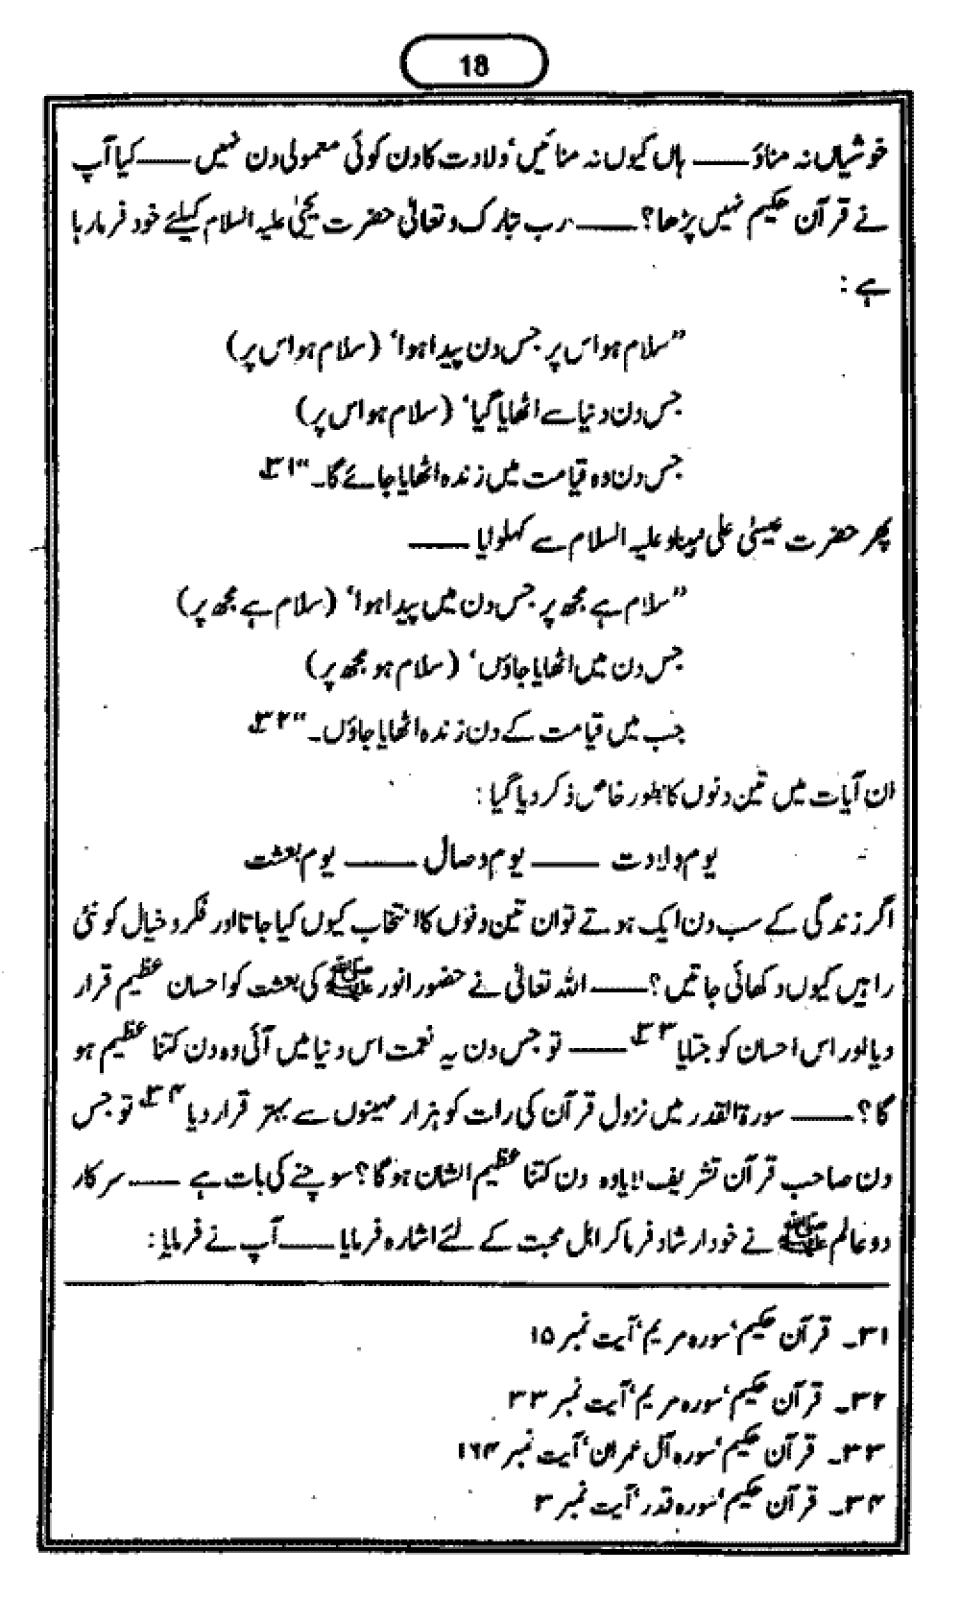 18
خوشیاں نہ مناؤ —— ہاں کیوں نہ منائیں، ولادت کا دن کوئی معمولی دن نہیں —— کیا آپ
نے قرآن حکیم نہیں پڑھا؟ —— رب تبارک و تعالیٰ حضرت یحییٰ علیہ السلام کیلئے خود فرما رہا
ہے :
”سلام ہو اس پر جس دن پیدا ہوا، (سلام ہو اس پر)
جس دن دنیا سے اٹھایا گیا، (سلام ہو اس پر)
جس دن وہ قیامت میں زندہ اٹھایا جائے گا۔“ ۳۱
پھر حضرت عیسیٰ علی نبینا و علیہ السلام سے کہلوایا ——
”سلام ہے مجھ پر جس دن میں پیدا ہوا، (سلام ہے مجھ پر)
جس دن میں اٹھایا جاؤں، (سلام ہو مجھ پر)
جب میں قیامت کے دن زندہ اٹھایا جاؤں۔“ ۳۲
ان آیات میں تین دنوں کا بطور خاص ذکر دیا گیا :
یوم ولادت —— یوم وصال —— یوم بعثت
اگر زندگی کے سب دن ایک ہوتے تو ان تین دنوں کا انتخاب کیوں کیا جاتا اور فکر و خیال کو نئی
راہیں کیوں دکھائی جاتیں؟ —— اللہ تعالیٰ نے حضور انور ﷺ کی بعثت کو احسان عظیم قرار
دیا اور اس احسان کو جتایا ۳۳ —— تو جس دن یہ نعمت اس دنیا میں آئی وہ دن کتنا عظیم ہو
گا؟ —— سورۃ القدر میں نزول قرآن کی رات کو ہزار مہینوں سے بہتر قرار دیا ۳۴ تو جس
دن صاحب قرآن تشریف لایا وہ دن کتنا عظیم الشان ہوگا؟ سوچنے کی بات ہے —— سرکار
دو عالم ﷺ نے خود ارشاد فرما کر اہل محبت کے لئے اشارہ فرمایا —— آپ نے فرمایا :
۳۱۔ قرآن حکیم، سورہ مریم، آیت نمبر ۱۵
۳۲۔ قرآن حکیم، سورہ مریم، آیت نمبر ۳۳
۳۳۔ قرآن حکیم، سورہ آل عمران، آیت نمبر ۱۶۴
۳۴۔ قرآن حکیم، سورہ قدر، آیت نمبر ۳